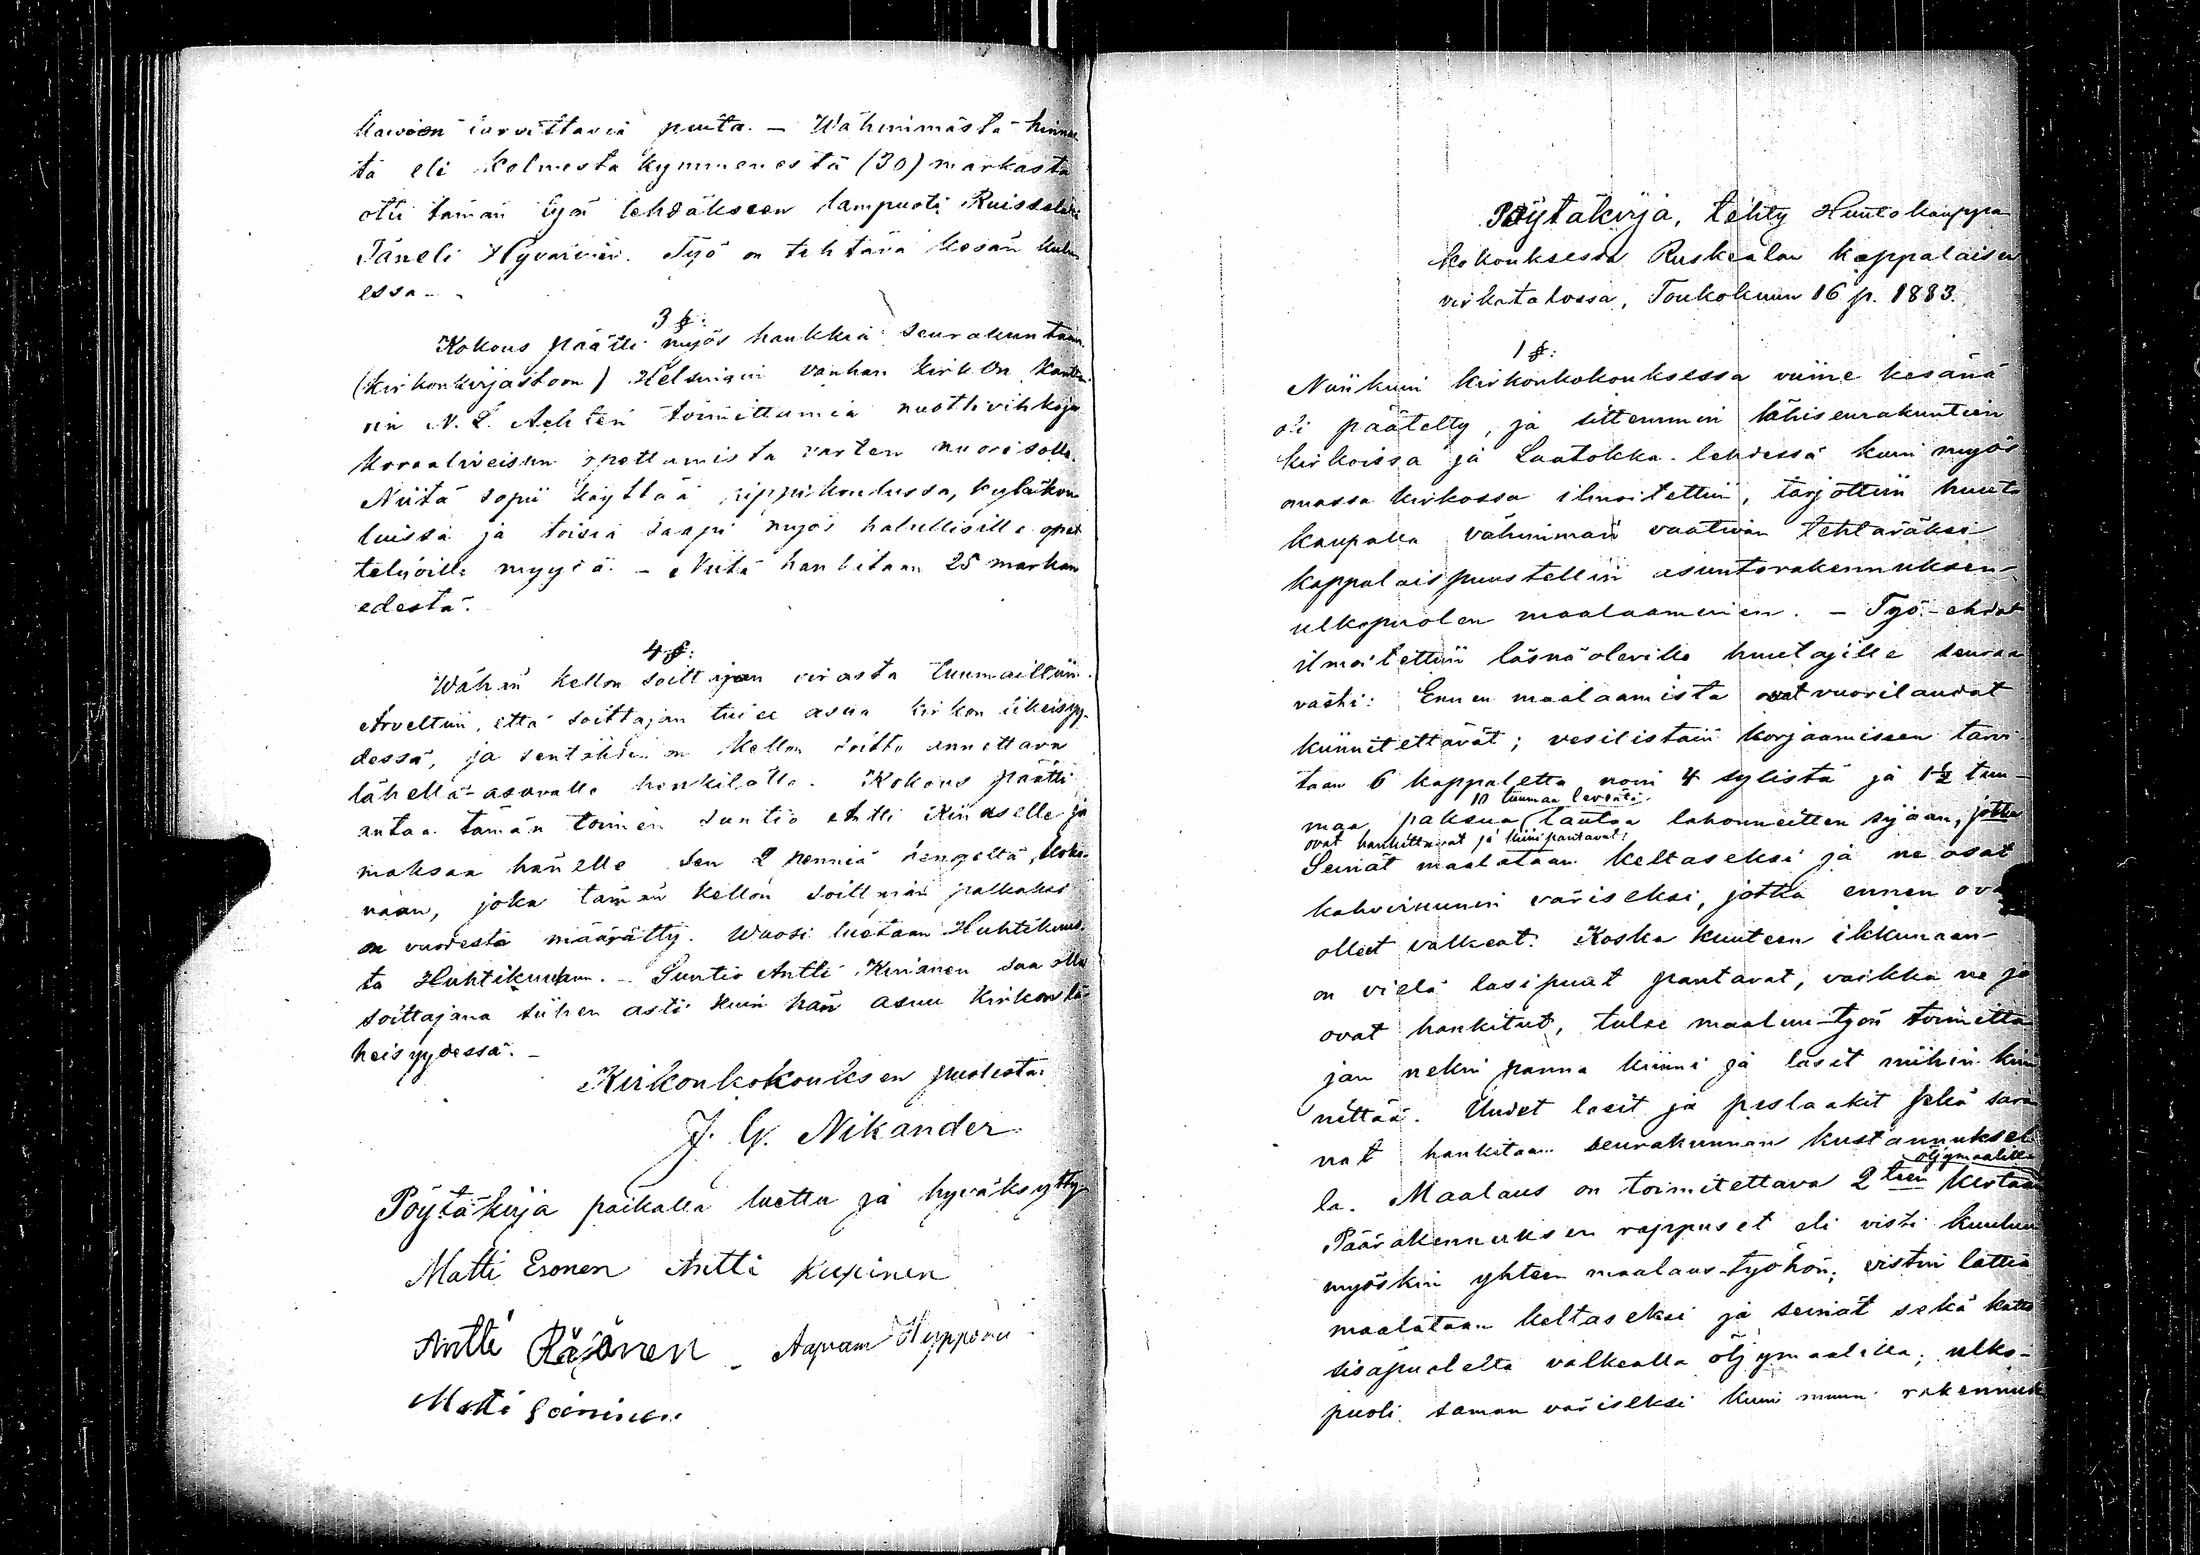 kaivoon tarvittavia puita. – Wähimmästä hinnas
ta eli kolmesta kymmenestä (30) markasta
otti tämän työn tehdäkseen lampuoti
Taneli Hyvärinen. Työ on tehtävä kesän kulu
essa. –
3 §:
Kokous päätti myös hankkia seurakuntaan
(kirkonkirjastoon) Helsingin vanhan kirkon kantto
rin N. L. Achtén toimittamia nuottivihkoja
koraaliveisun opettamista varten nuorisolle.
Niitä sopii käyttää rippikoulussa, kyläkou
luissa ja toisia saapi myös halullisille opet
telijoille myydä. – Niitä hankitaan 25 markan
edestä.
4 §:
Wähän kellon soittajan virasta tuumailtiin.
Arveltiin, että soittajan tulee asua kirkon likeisyy-
dessä, ja sentähden on kellon soitto annettava
lähellä-asuvalle henkilölle. Kokous päätti
antaa tämän toimen suntio Antti Kinaselle ja
maksaa hänelle sen 2 penniä hengeltä, koko-
naan, joka tämän kellon soittajan palkaksi
on vuodesta määrätty. Wuosi luetaan Huhtikuus
ta Huhtikuuhun. – Suntio Antti Kinanen saa olla
soittajana siihen asti kuin hän asuu kirkon lä-
heisyydessä. –
Kirkonkokouksen puolesta:
J. G. Nikander
Pöytäkirja paikalla luettu ja hyväksytty
Matti Esonen Antti
Antti Räsänen – Aapram Hypponen
Matti
Pöytäkirja, tehty Huutokauppa
kokouksessa Ruskealan kappalaisen
virkatalossa, Toukokuun 16 p. 1883.
1 §:
Niinkuin kirkonkokouksessa viime kesänä
oli päätetty, ja sittemmin lähiseurakuntien
kirkoissa ja Laatokka-lehdessä kuin myös
omassa kirkossa ilmoitettiin, tarjottiin huuto
kaupalla vähimmän vaativan tehtäväksi
kappalaispuustellin asuntorakennuksen
ulkopuolen maalaaminen. – Työ-ehdot
ilmoitettiin läsnäoleville huutajille seuraa
vasti: Ennen maalaamista ovat vuorilaudat
kiinnitettävät; vesilistain korjaamiseen tarvi
taan 6 kappaletta noin 4 sylistä ja 1½ tuu-
10 tuumaa leveätä
maa paksua lautaa lahonneitten sijaan, jotka
ovat hankittavat ja kiinipantavat:
Seinät maalataan keltaseksi ja ne osat
kahvirunnin väriseksi, jotka ennen ovat
olleet valkeat. Koska kuuteen ikkunaan
on vielä lasipuut pantavat, vaikka ne jo
ovat hankitut, tulee maalun-työn toimitta
jan nekin panna kiinni ja lasit niihin kiin
nittää. Uudet lasit ja peslaakit sekä sara
nat hankitaan seurakunnan kustannuksel
öljymaalilla
la. Maalaus on toimitettava 2 teen kertaan
Päärakennuksen rappuset eli visti kuuluu
myöskin yhteen maalaus-työhön; vistin lattia
maalataan keltaseksi ja seinät sekä katto
sisäpuolelta valkealla öljymaalilla; ulko-
puoli saman väriseksi kuin muu rakennuk